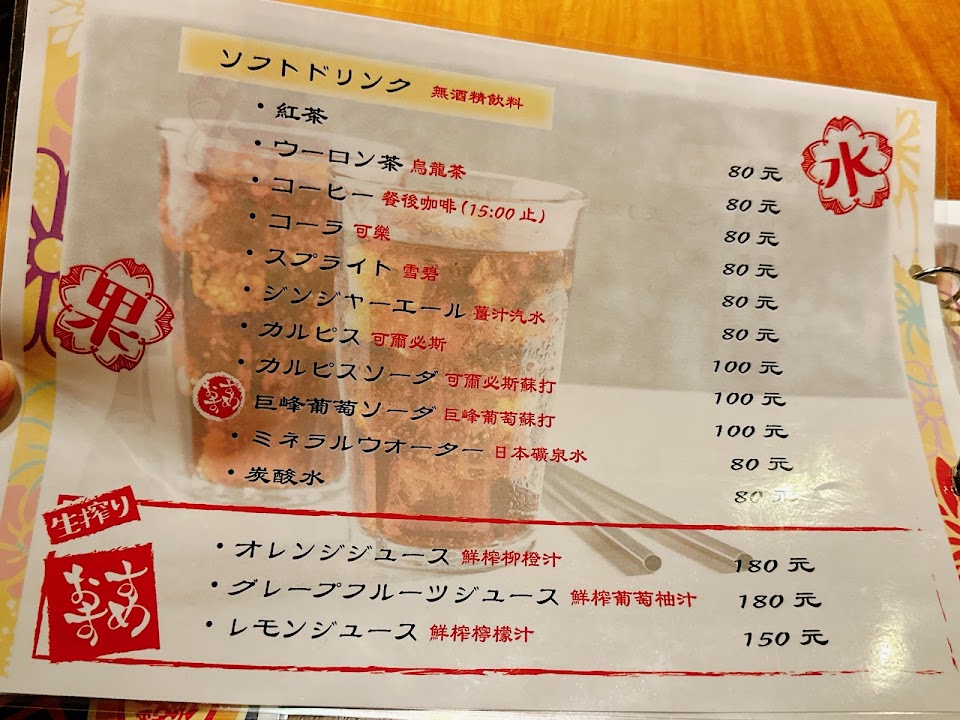 ソフトドリンク 無酒精飲料
・紅茶 80元
・ウーロン茶 烏龍茶 80元
・コーヒー 餐後咖啡(15:00止) 80元
・コーラ 可樂 80元
・スプライト 雪碧 80元
・ジンジャーエール 薑汁汽水 80元
・カルピス 可爾必斯 100元
・カルピスソーダ 可爾必斯蘇打 100元
おすすめ 巨峰葡萄ソーダ 巨峰葡萄蘇打 100元
・ミネラルウオーター 日本礦泉水 80元
・炭酸水 80元
水
果
生搾り
おすすめ
・オレンジジュース 鮮榨柳橙汁 180元
・グレープフルーツジュース 鮮榨葡萄柚汁 180元
・レモンジュース 鮮榨檸檬汁 150元